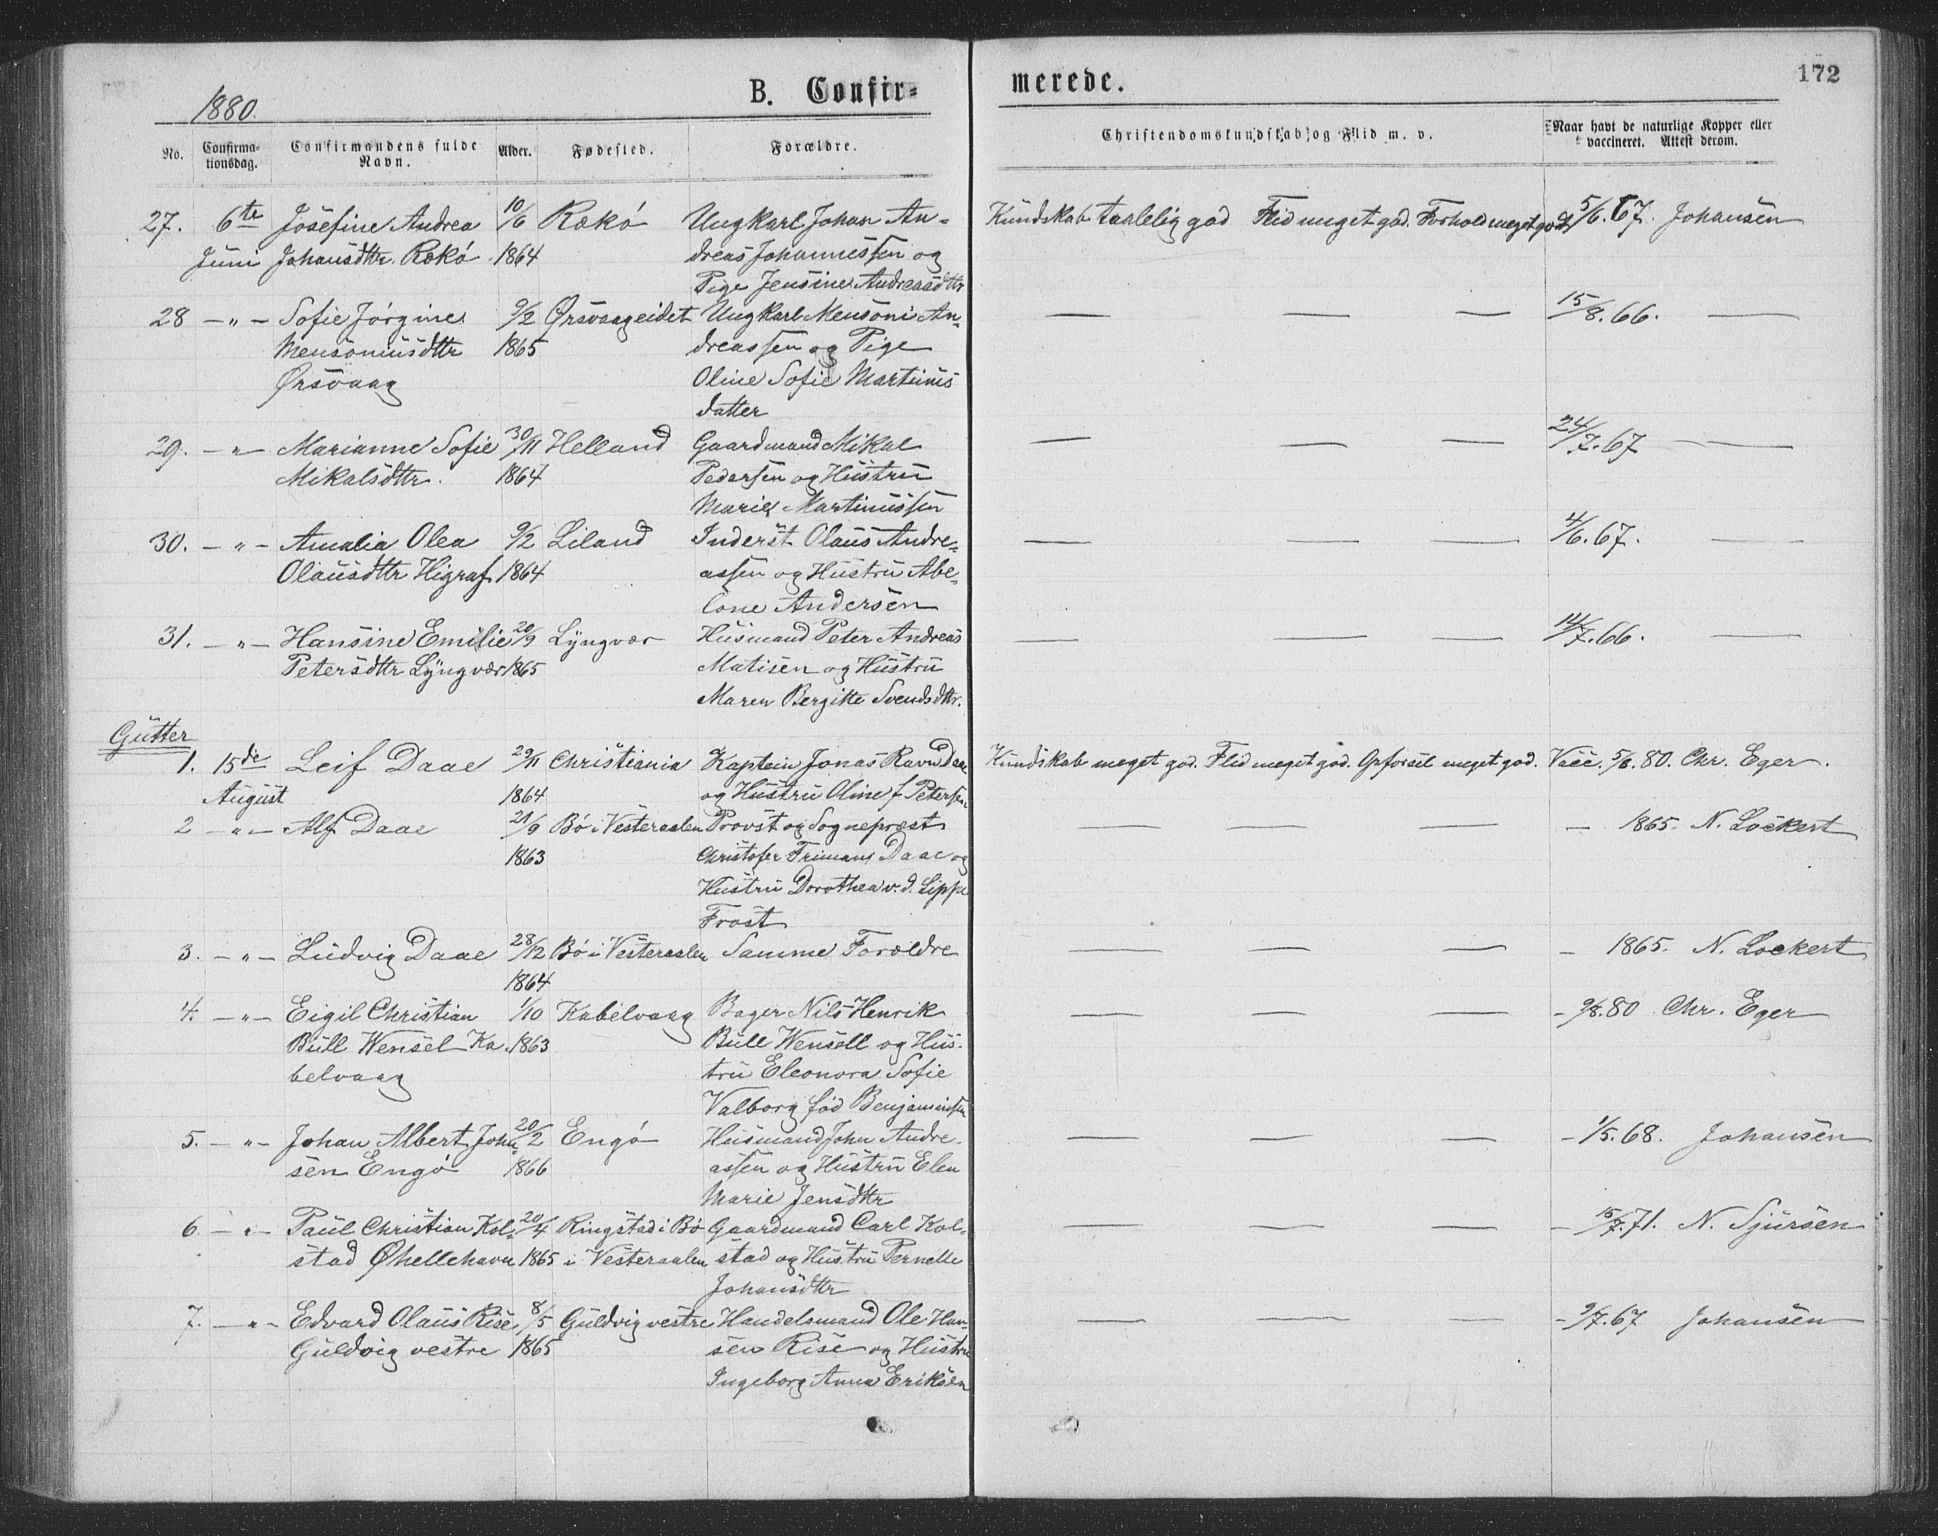 1880.
B. Confir-
merede.
172
No.
Confirma-
tionsdag.
Confirmandens fulde
Navn.
Alder.
Fødested.
Forældre.
Christendomskundskab og Flid m. v.
Naar havt de naturlige Kopper eller
vaccineret. Attest derom.
27. 6te Josefine Andrea 10/6 Rækø Ungkarl Johan An- Kundskab taalelig god Flid meget god. Forhold meget godt 5/6.67. Johansen
Juni Johansdttr. Rækø 1864 dreas Johannessen og
Pige Jensine Andreasdttr
28 — " — Sofie Jørgine 9/2 Ørsvaageidet Ungkarl Mensoni An- — — — 15/8.66. —
Mensoniusdttr 1865 dreassen og Pige
Ørsvaag Oline Sofie Martinus
datter
29. — " — Marianne Sofie 30/11 Helland Gaardmand Mikal — — — 24/7.67 —
Mikalsdttr. 1864 Pedersen og Hustru
Marie Martinussen
30. — " — Amalia Olea 9/2 Liland Inderst Olaus Andre- — — — 4/6.67. —
Olausdttr Higraf 1864 assen og Hustru Abe-
lone Andersen
31. — " — Hansine Emilie 20/9 Lyngvær Husmand Peter Andreas — — — 14/7.66. —
Petersdttr Lyngvær 1865 Matisen og Hustru
Maren Bergitte Svendsdttr.
Gutter
1. 15de Leif Daae 29/11 Christiania Kaptein Jonas Ravn Daae Kundskab meget god. Flid meget god. Opførsel meget god. Vacc. 5/8.80. Chr. Eger.
August 1864 og Hustru Oline f. Petersen
2 — " — Alf Daae 21/9 Bø i Vesteraalen Provst og Sognepræst — — — — 1865. N. Lockert
1863 Christofer Frimann Daae og
Hustru Dorothea v. d. Lippe
Frost
3. — " — Ludvig Daae 28/12 Bø i Vesteraalen Samme Forældre — — — — 1865. N. Lockert
1864
4. — " — Eigil Christian 1/10 Kabelvaag Bager Nils Henrik — — — - 9/8.80 Chr. Eger
Bull Wensel Ka- 1863 Bull Wensell og Hus-
belvaag tru Eleonora Sofie
Valborg fød Benjaminsen
5. — " — Johan Albert John- 20/2 Engø Husmand John Andre- — — — - 1/5.68. Johansen
sen Engø 1866 assen og Hustru Elen
Marie Jensdttr
6. — " — Paul Christian Kol- 20/4 Ringstad i Bø Gaardmand Carl Kol- — — — - 15/7.71. N. Sjursen
stad Øhellehavn 1865 i Vesteraalen stad og Hustru Pernelle
Johansdttr
7. — " — Edvard Olaus Rise, 8/5 Guldvig vestre Handelsmand Ole Han- — — — - 9/7.67 Johansen
Guldvig vestre 1865 sen Rise og Hustru
Ingeborg Anna Eriksen